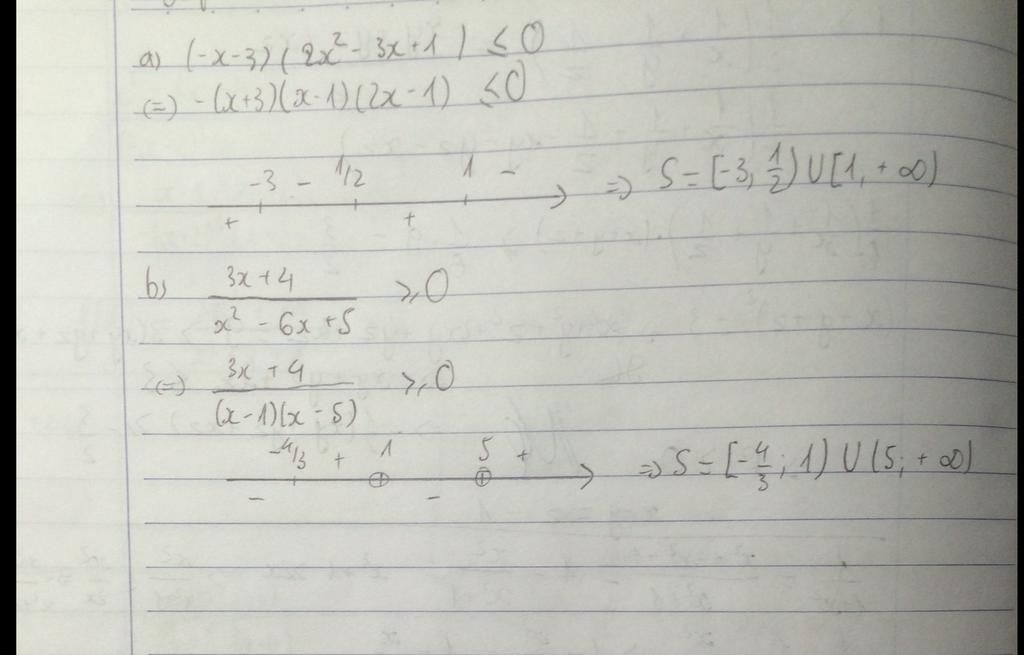 a) (-x-3)(2x² - 3x+1) ≤ 0
(=) -(x+3)(x-1)(2x-1) ≤0
-3 - 1/2 1 -
+ + => S = [-3, 1/2) U [1, +∞)
b) (3x+4)/(x² - 6x+5) ≥ 0
(=) (3x+4)/((x-1)(x-5)) ≥ 0
-4/3 + 1 5 +
- - => S = [-4/3; 1) U (5; +∞)